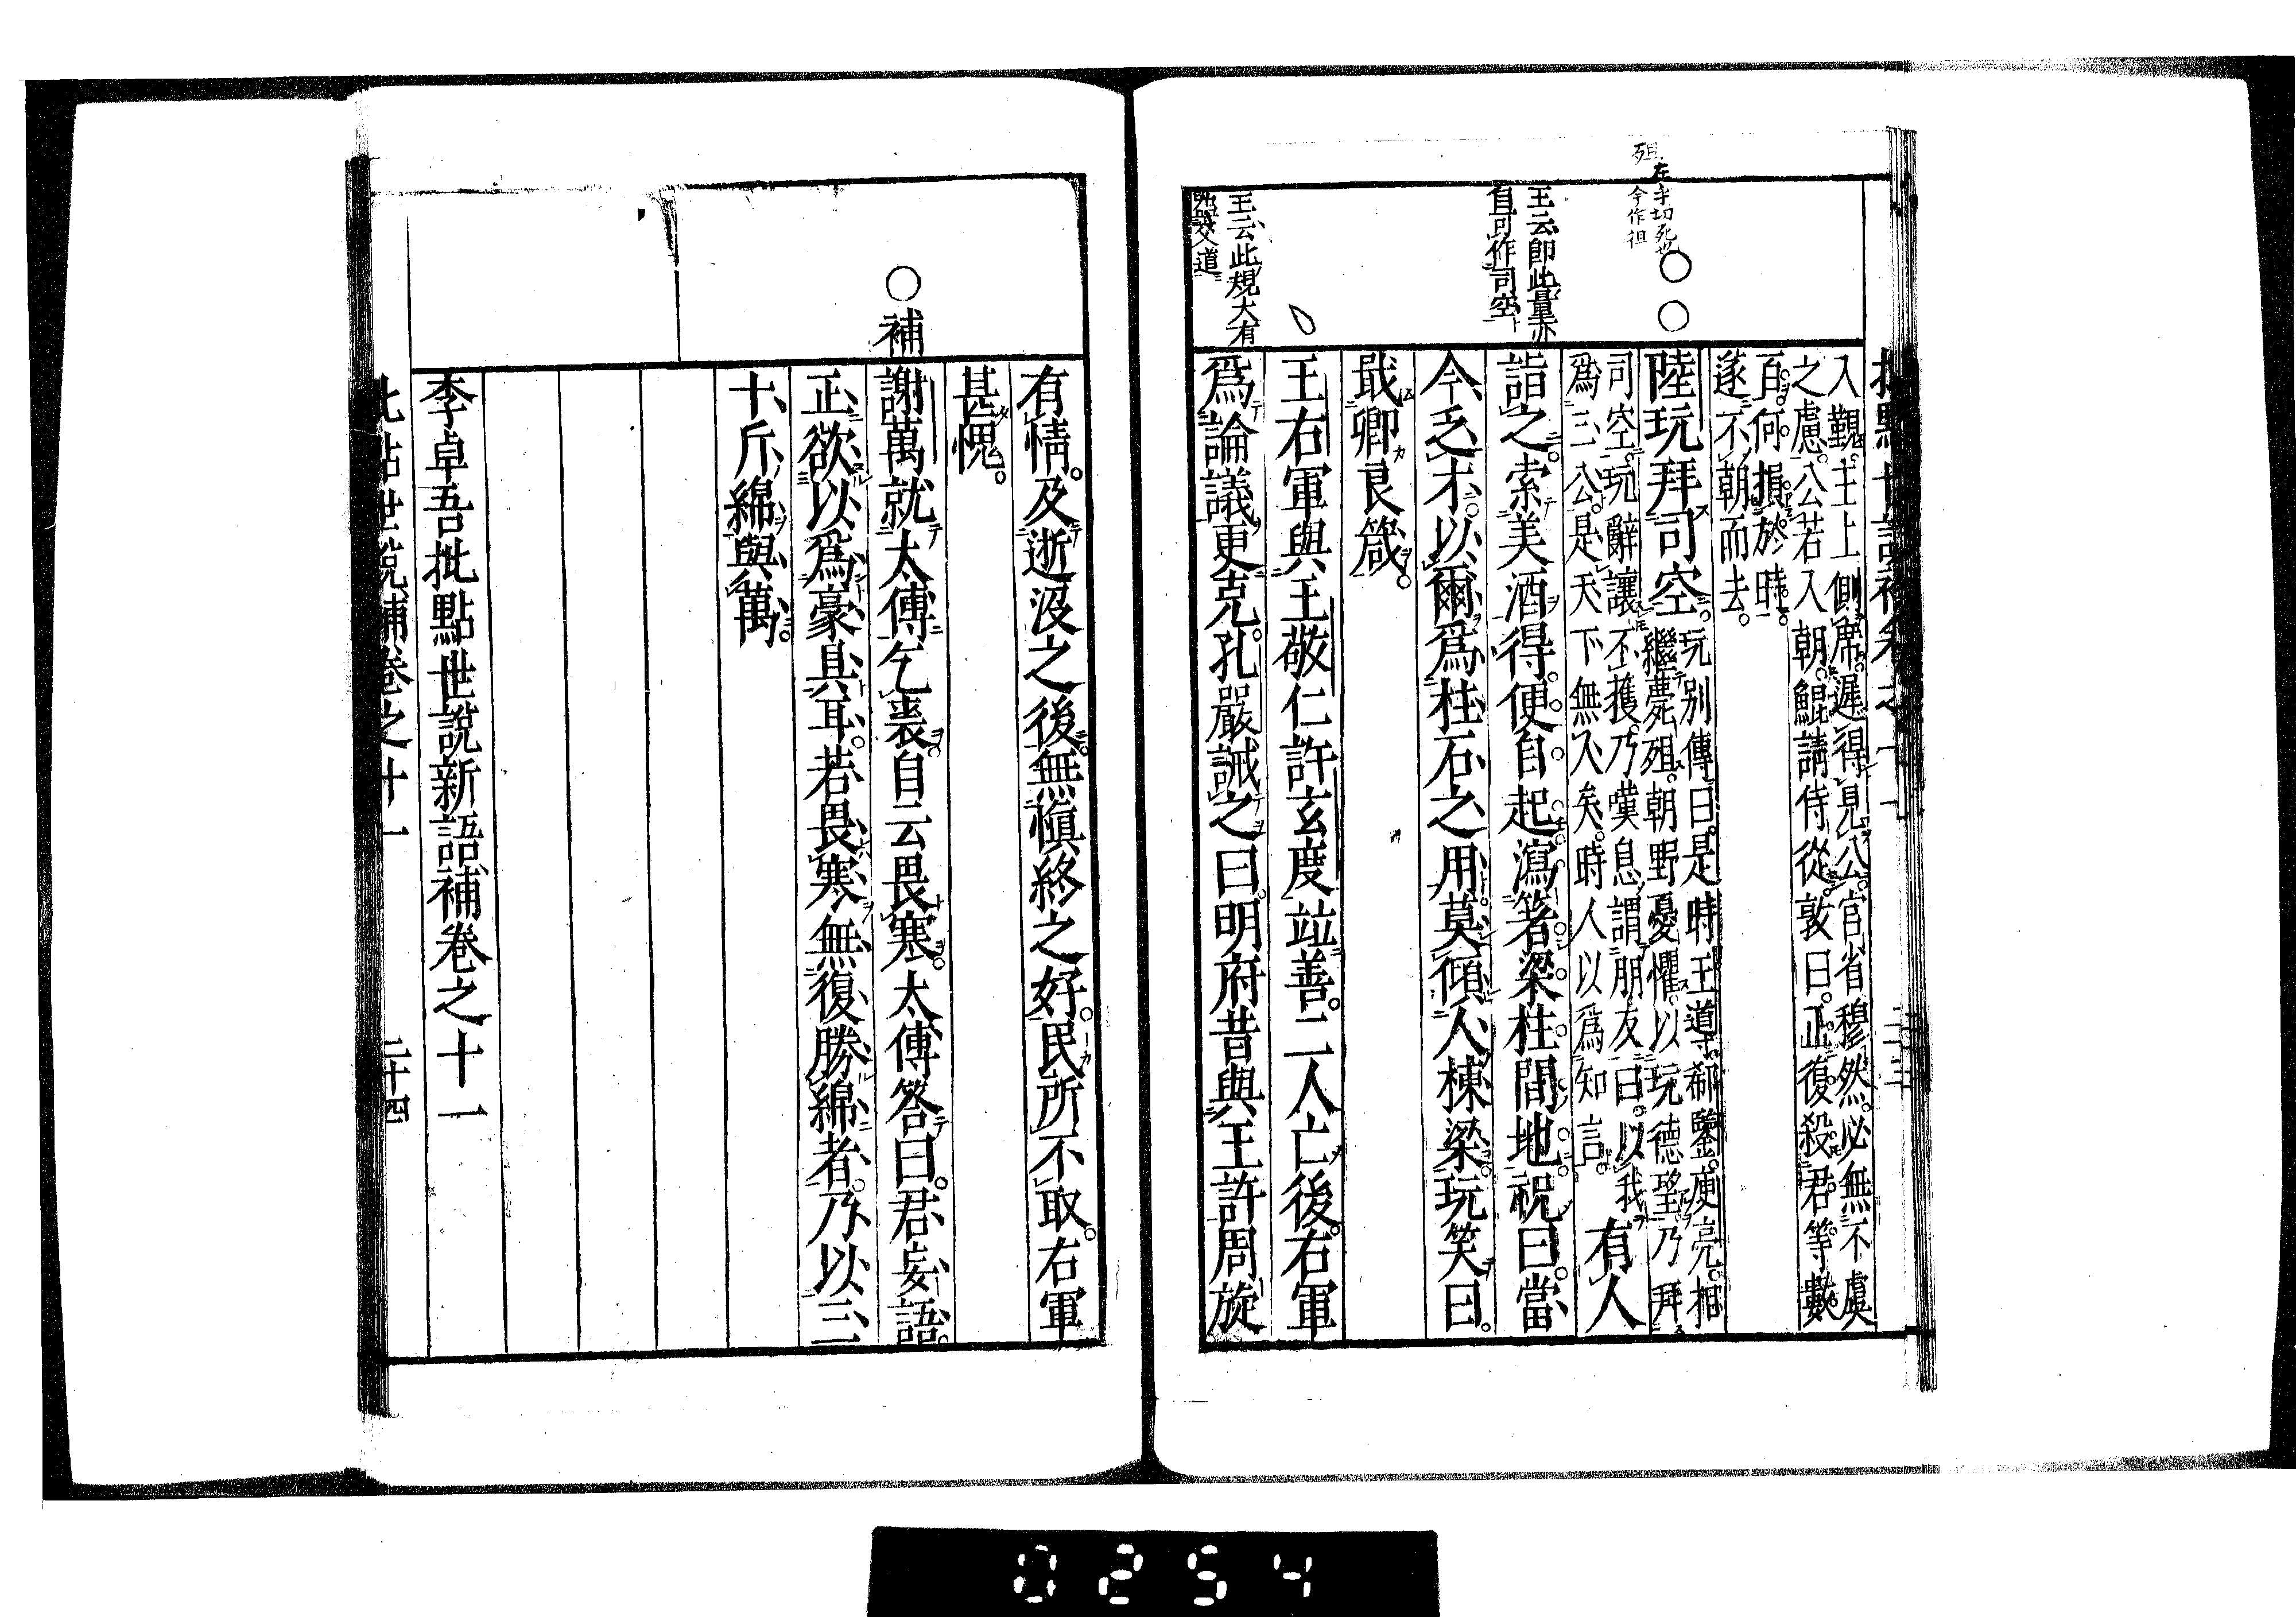 殂
左乎切死也
今作徂
王云卽此量亦
自可作司空
王云此規大有
入覲主上側席遲得見公宮省穆然必無不虞
之慮公若入朝鯤請侍從敦曰正復殺君等數
百何損於時
遂不朝而去
陸玩拜司空
玩別傳曰是時王導郗鑒庾亮相
繼薨殂朝野憂懼以玩德望乃拜
司空玩辭讓不獲乃嘆息謂朋友曰以我
爲三公是天下無人矣時人以爲知言
有人
詣之索美酒得便自起瀉著梁柱間地祝曰當
今乏才以爾爲柱石之用莫傾人棟梁玩笑曰
戢卿良箴
王右軍與王敬仁許玄度竝善二人亡後右軍
爲論議更克孔巖誡之曰明府昔與王許周旋
有情及逝沒之後無愼終之好民所不取右軍
甚愧
○補
謝萬就太傅乞裘自云畏寒太傅答曰君妄語
正欲以爲豪具耳若畏寒無復勝綿者乃以三
十斤綿與萬
李卓吾批點世說新語補卷之十一
世說補卷之十一
二十四
0254